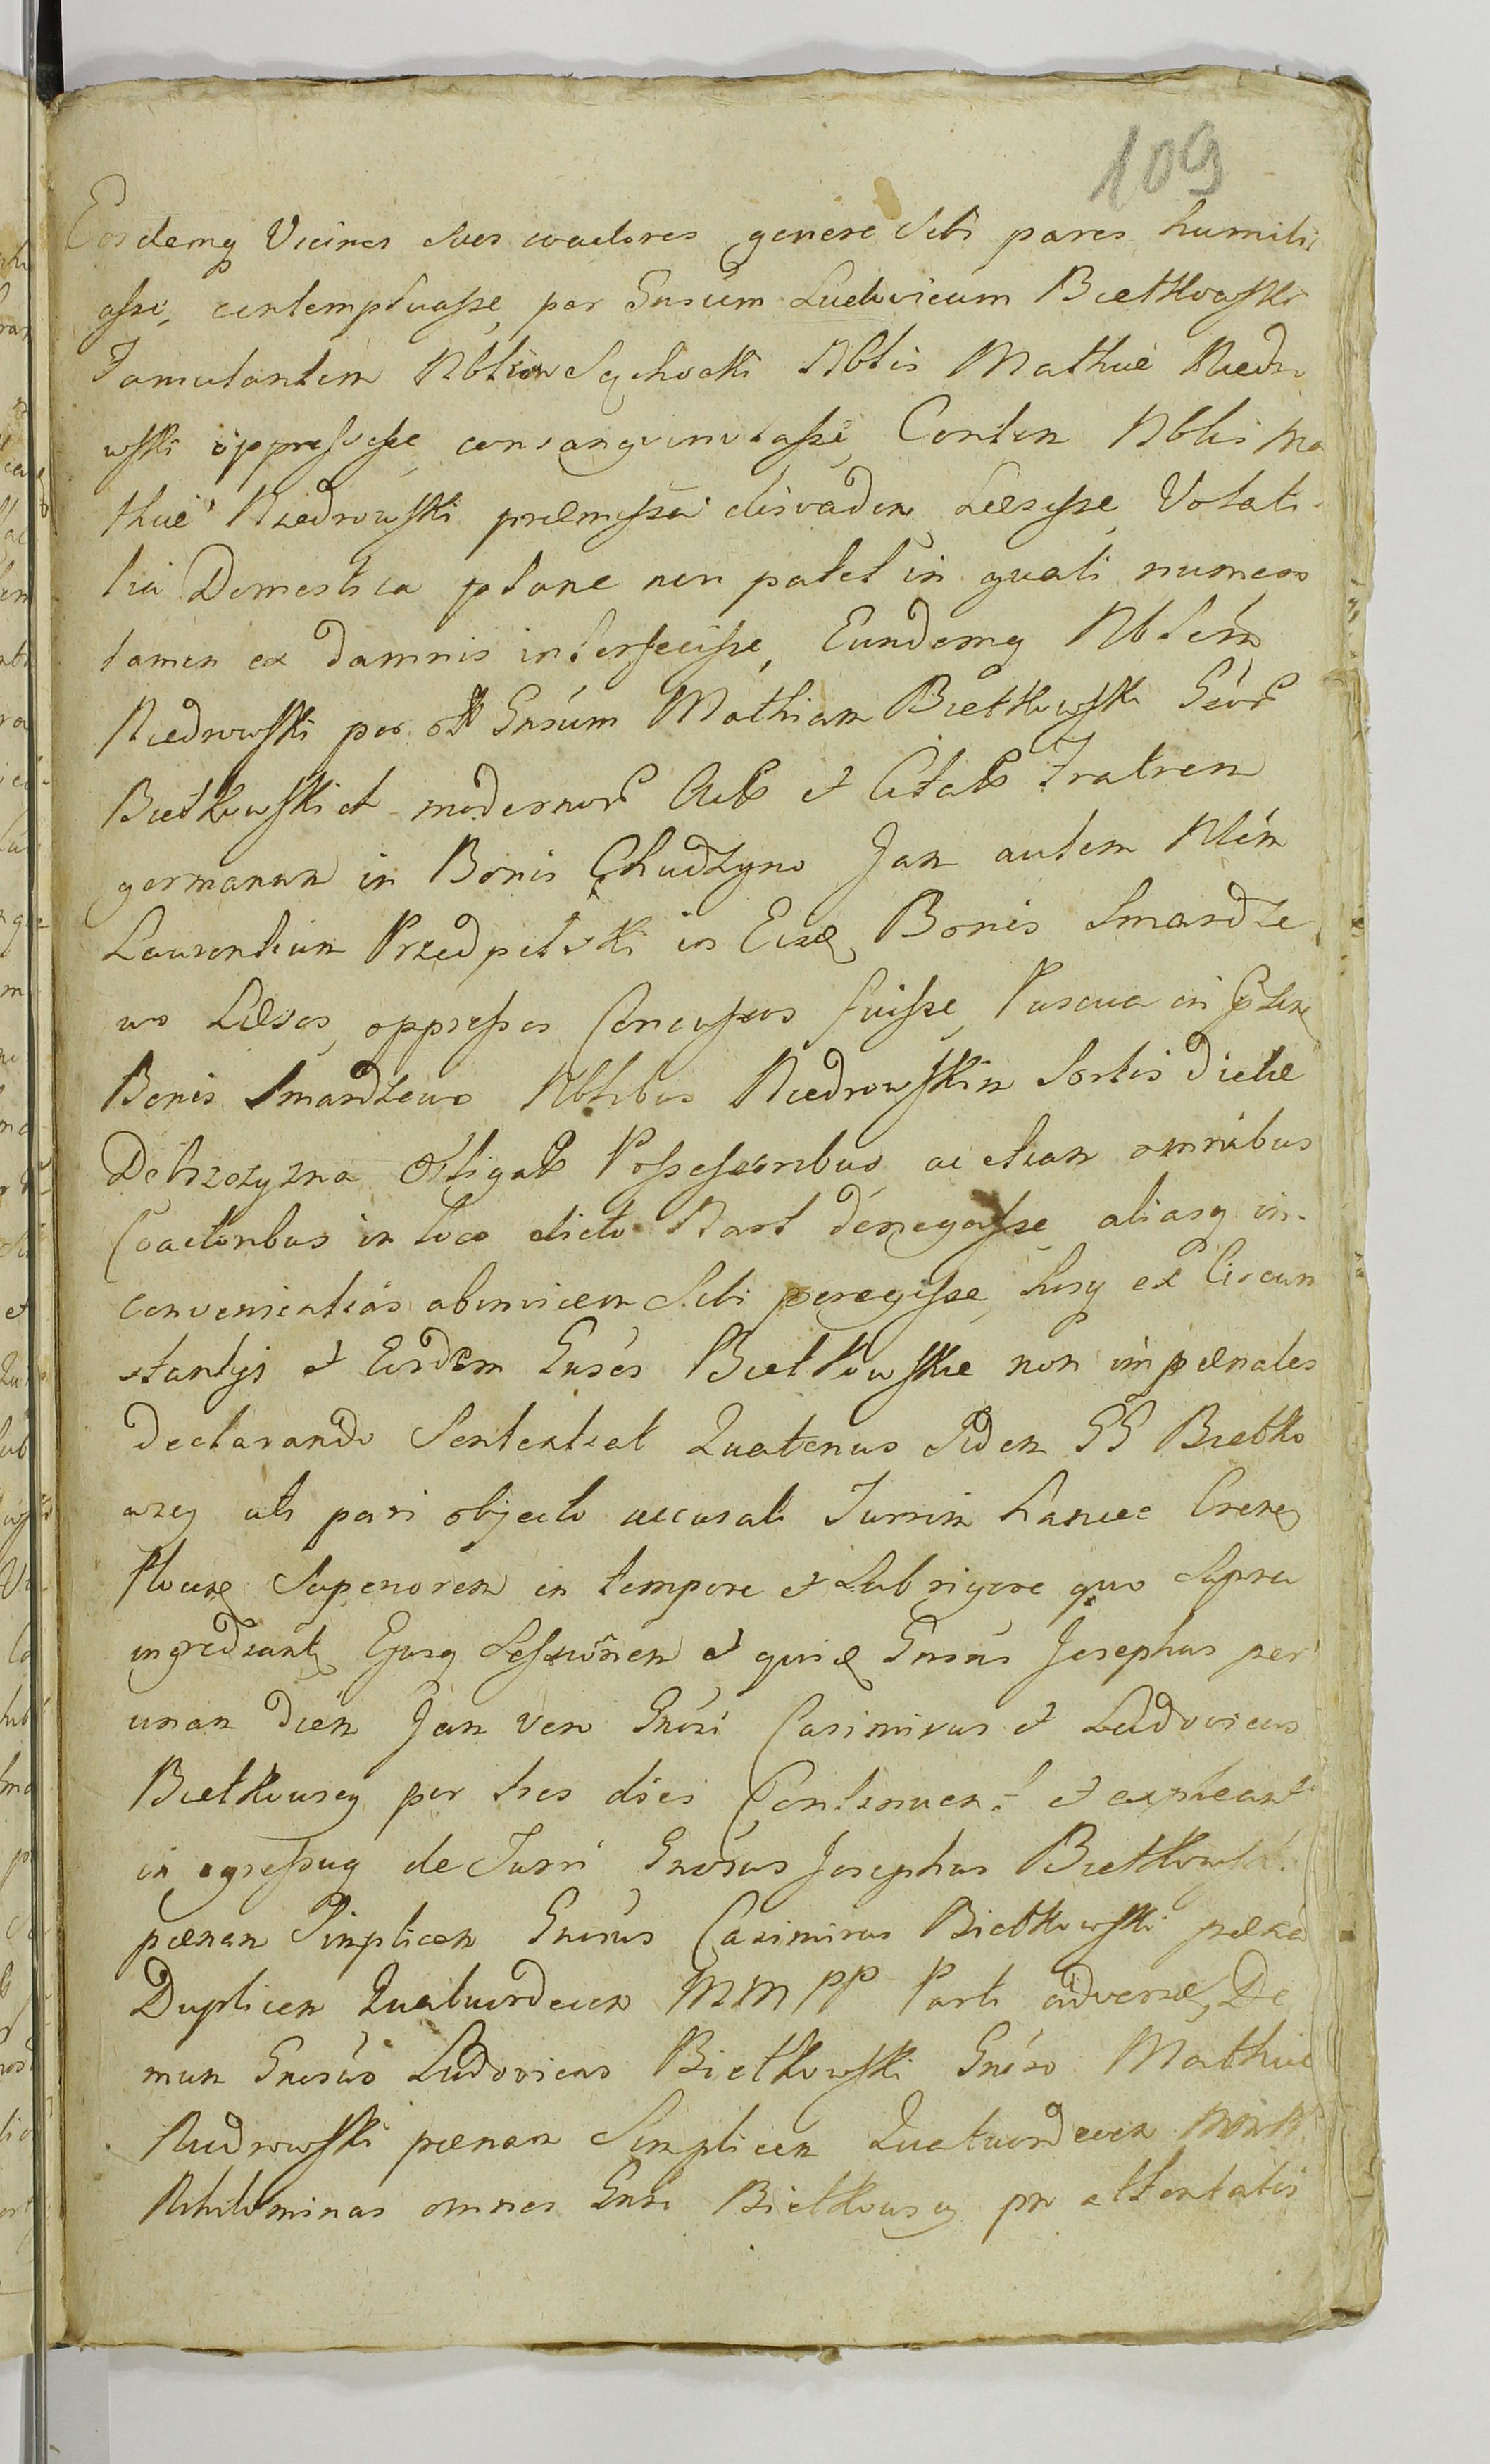 109
Eosdemq Vicinos suos coactores genere sibi pares humili
asse, contemptuasse, per Gnsum Ludovicum Bietkowski
Famulantem Nblem Sęchocki Nblis Mathiæ Niedro
wski oppressisse, consanguinolasse, Conten Nblis Ma
thiæ Niedrowski præmissa disvaden Læsisse, Volati-
lia Domestica plane non patet in quali numero
tamen ex damnis interfecisse, Eundemq Nblem
Niedrowski per Gnsum Mathiam Bietkowski Gsor
Bietkowskich modernor Act et Citat Fratrem
germanum in Bonis Chudzyno Jam autem Nlem
Laurentium Przedpelski in Eisd Bonis Smardze
wo Læsos, oppressos Concussos fuisse, Pascua in
Bonis Smardzewo Nblibus Niedrowskim Sortis dictæ
Debrzezyzna Obligat Possessoribus ac etiam omnibus
Coactoribus in loco dicto Nart denegasse, aliasq in-
convenientias abinvicem sibi peregisse, hisq ex Circum
stantys et Eosdem Gnsos Bietkowskie non impænales
declarando Sententiat Quatenus Iidem GG Bietko
wscy uti pari objecto accusati Turrim hancce Crem
Plocens Superiorem in tempore et sub rigore quo supra
ingrediant Ejusq Sessionem et quid Gnsus Josephus per
unam diem Jam vero Gnosi Casimirus et Ludovicus
Bietkowscy per tres dies Continuent et expleant
in egressuq de Turri Gnosus Josephus Bietkowski
pænam Simplicem Gnosus Casimirus Bietkowski pæna
Duplicem Quatuordecem MMPP Parti adversæ, De
mum Gnosus Ludovicus Bietkowski Gnoso Mathiæ
Niedrowski pænam Simplicem Quatuordecem MMPP
Nihilominus omnes Gnsi Bietkowscy pro attentatis